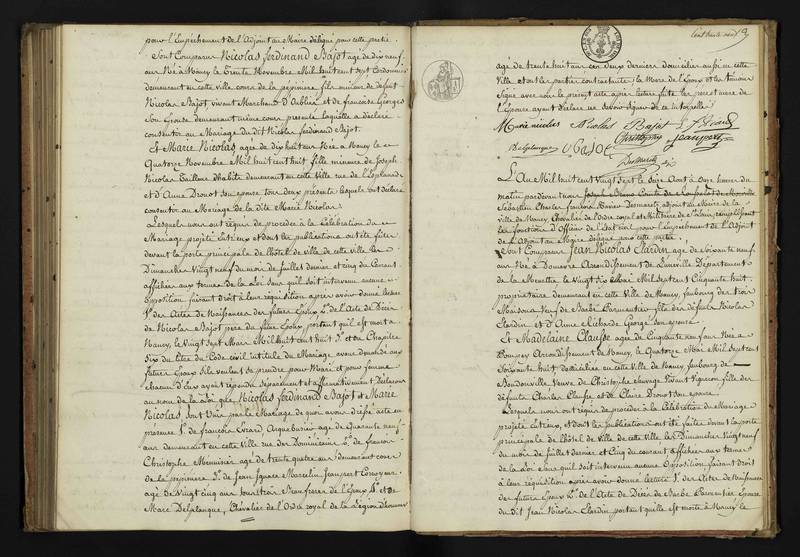 pour l'Empêchement de l'Adjoint au Maire délégué pour cette partie.
Sont Comparus Nicolas ferdinand Bajot agé de dix neuf
ans Né à Nancy le Trente Novembre Mil huit cent sept Cordonnier
demeurant en cette Ville cours de la pépinière fils mineur de défunt
Nicolas Bajot vivant Marchand et de francoise Georges
Son Epouse demeurant même cours présente laquelle a déclaré
consentir au Mariage du dit Nicolas ferdinand Bajot.
Et Marie Nicolas agée de dix huit ans Née à Nancy le
Quatorze Novembre Mil huit cent huit fille mineure de Joseph
Nicolas Tailleur d'habits demeurant en cette Ville rue de l'Esplanade
et d'Anne Drouot son épouse tous deux présents lesquels ont déclaré
consentir au Mariage de la dite Marie Nicolas.
Lesquels nous ont requis de procéder à la Célébration du
Mariage projeté entr'eux et dont les publications ont été faites
devant la porte principale de l'hôtel de Ville de cette ville les
Dimanches Vingt neuf du mois de Juillet dernier et cinq du Courant
affichées aux termes de la loi sans qu'il soit intervenu aucune
Opposition faisant droit à leur réquisition après avoir donné lecture
1.° des Actes de Naissances des futurs Epoux 2.° de l'Acte de Décès
de Nicolas Bajot père du futur Epoux portant qu'il est mort à
Nancy, le Vingt sept Mars Mil huit cent huit 3.° et du Chapitre
Six du titre du Code civil intitulé du Mariage avons demandé aux
futurs Epoux s'ils veulent se prendre pour Mari et pour femme
chacun d'eux ayant répondu séparément et affirmativement Déclarons
au nom de la loi que Nicolas ferdinand Bajot et Marie
Nicolas sont Unis par le Mariage de quoi avons dressé acte en
présence 1.° de francois Evrard Arquebusier agé de quarante neuf
ans demeurant en cette Ville rue des Dominicains 2.° de francois
Christophe Menuisier agé de trente quatre ans demeurant cours
de la pépinière 3.° de Jean Ignace Marcelin Jeanpert
agé de Vingt cinq ans 4.° et de
Marc Delplanque, Chevalier de l'Ordre royal de la légion d'honneur
Cent trente neuf
agé de trente huit ans ces deux derniers domiciliés aussi en cette
Ville et ont les parties contractantes, la Mère de l'Epoux et les témoins
signé avec nous le présent acte après lecture faite les père et mère de
l'Epouse ayant déclaré ne savoir signer de ce interpellés
Marie nicolas Nicolas Bajot f. Evrard
Christophe Jeanpert
Delplanque
L'An Mil huit cent Vingt sept le Seize Août à Onze heures du
matin pardevant nous
Sébastien Charles francois Xavier Desmarets, adjoint au Maire de la
ville de Nancy, Chevalier de l'Ordre royal et Militaire de St Louis, remplissant
les fonctions d'Officier de l'état civil pour l'Empêchement de l'Adjoint
de l'Adjoint au Maire délégué pour cette partie.
Sont Comparus Jean Nicolas Clardin agé de Soixante neuf
ans Né à Domevre Arrondissement de Lunéville Département
de la Meurthe le Vingt Six Mars Mil sept cent Cinquante huit
propriétaire demeurant en cette Ville de Nancy, faubourg des trois
Maisons Veuf de Barbe Parmentier fils des défunts Nicolas
Clardin et d'Anne Richarde George son épouse.
Et Madelaine Clausse agée de Cinquante neuf ans Née à
Bouxey Arrondissement de Nancy, le Quatorze Mai Mil sept cent
Soixante huit domiciliée en cette Ville de Nancy faubourg de
Boudonville Veuve de Christophe vivant Vigneron fille des
défunts Charles Clausse et de Claire Drouot son épouse.
Lesquels nous ont requis de procéder à la Célébration du Mariage
projeté entr'eux, et dont les publications ont été faites devant la porte
principale de l'hôtel de Ville de cette Ville les Dimanches Vingt neuf
du mois de Juillet dernier et Cinq du courant affichées aux termes
de la loi sans qu'il soit intervenu aucune Opposition faisant droit
à leur réquisition après avoir donné lecture 1.° des Actes de Naissances
des futurs Epoux 2.° de l'Acte de Décès de Barbe Parmentier Epouse
du dit Jean Nicolas Clardin portant qu'elle est morte à Nancy le